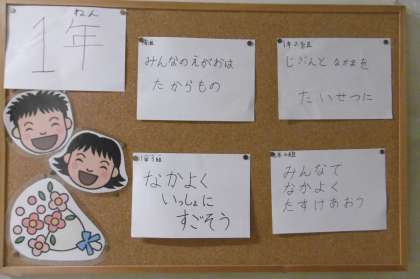 ねん
1年
みんなのえがおは
たからもの
1年2組
じぶんと なかまを
たいせつに
1年3組
なかよく
いっしょに
すごそう
みんなで
なかよく
たすけあおう